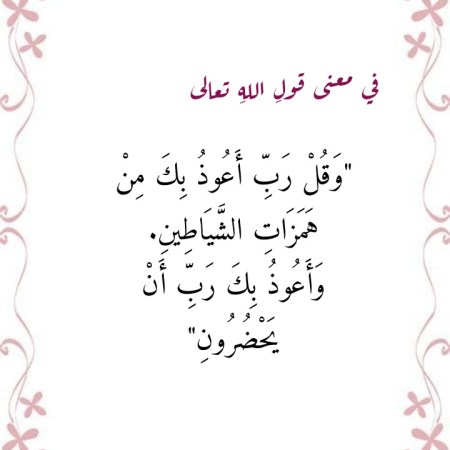 في معنى قولِ اللهِ تعالى
"وَقُلْ رَبِّ أَعُوذُ بِكَ مِنْ
هَمَزَاتِ الشَّيَاطِينِ.
وَأَعُوذُ بِكَ رَبِّ أَنْ
يَحْضُرُونِ"